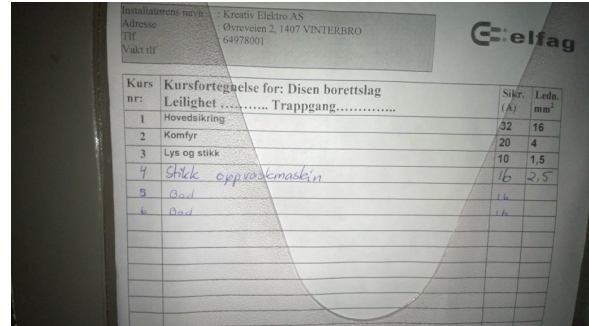 Installatørens navn : Kreativ Elektro AS
Adresse : Øvreveien 2, 1407 VINTERBRO
Tlf : 64978001
Vakt tlf
elfag
Kurs nr: Kursfortegnelse for: Disen borettslag Sikr. (A) Ledn. mm²
Leilighet ........... Trappgang..............
1 Hovedsikring 32 16
2 Komfyr 20 4
3 Lys og stikk 10 1,5
4 Stikk oppvaskmaskin 16 2,5
5 Bad 16
6 Bad 16